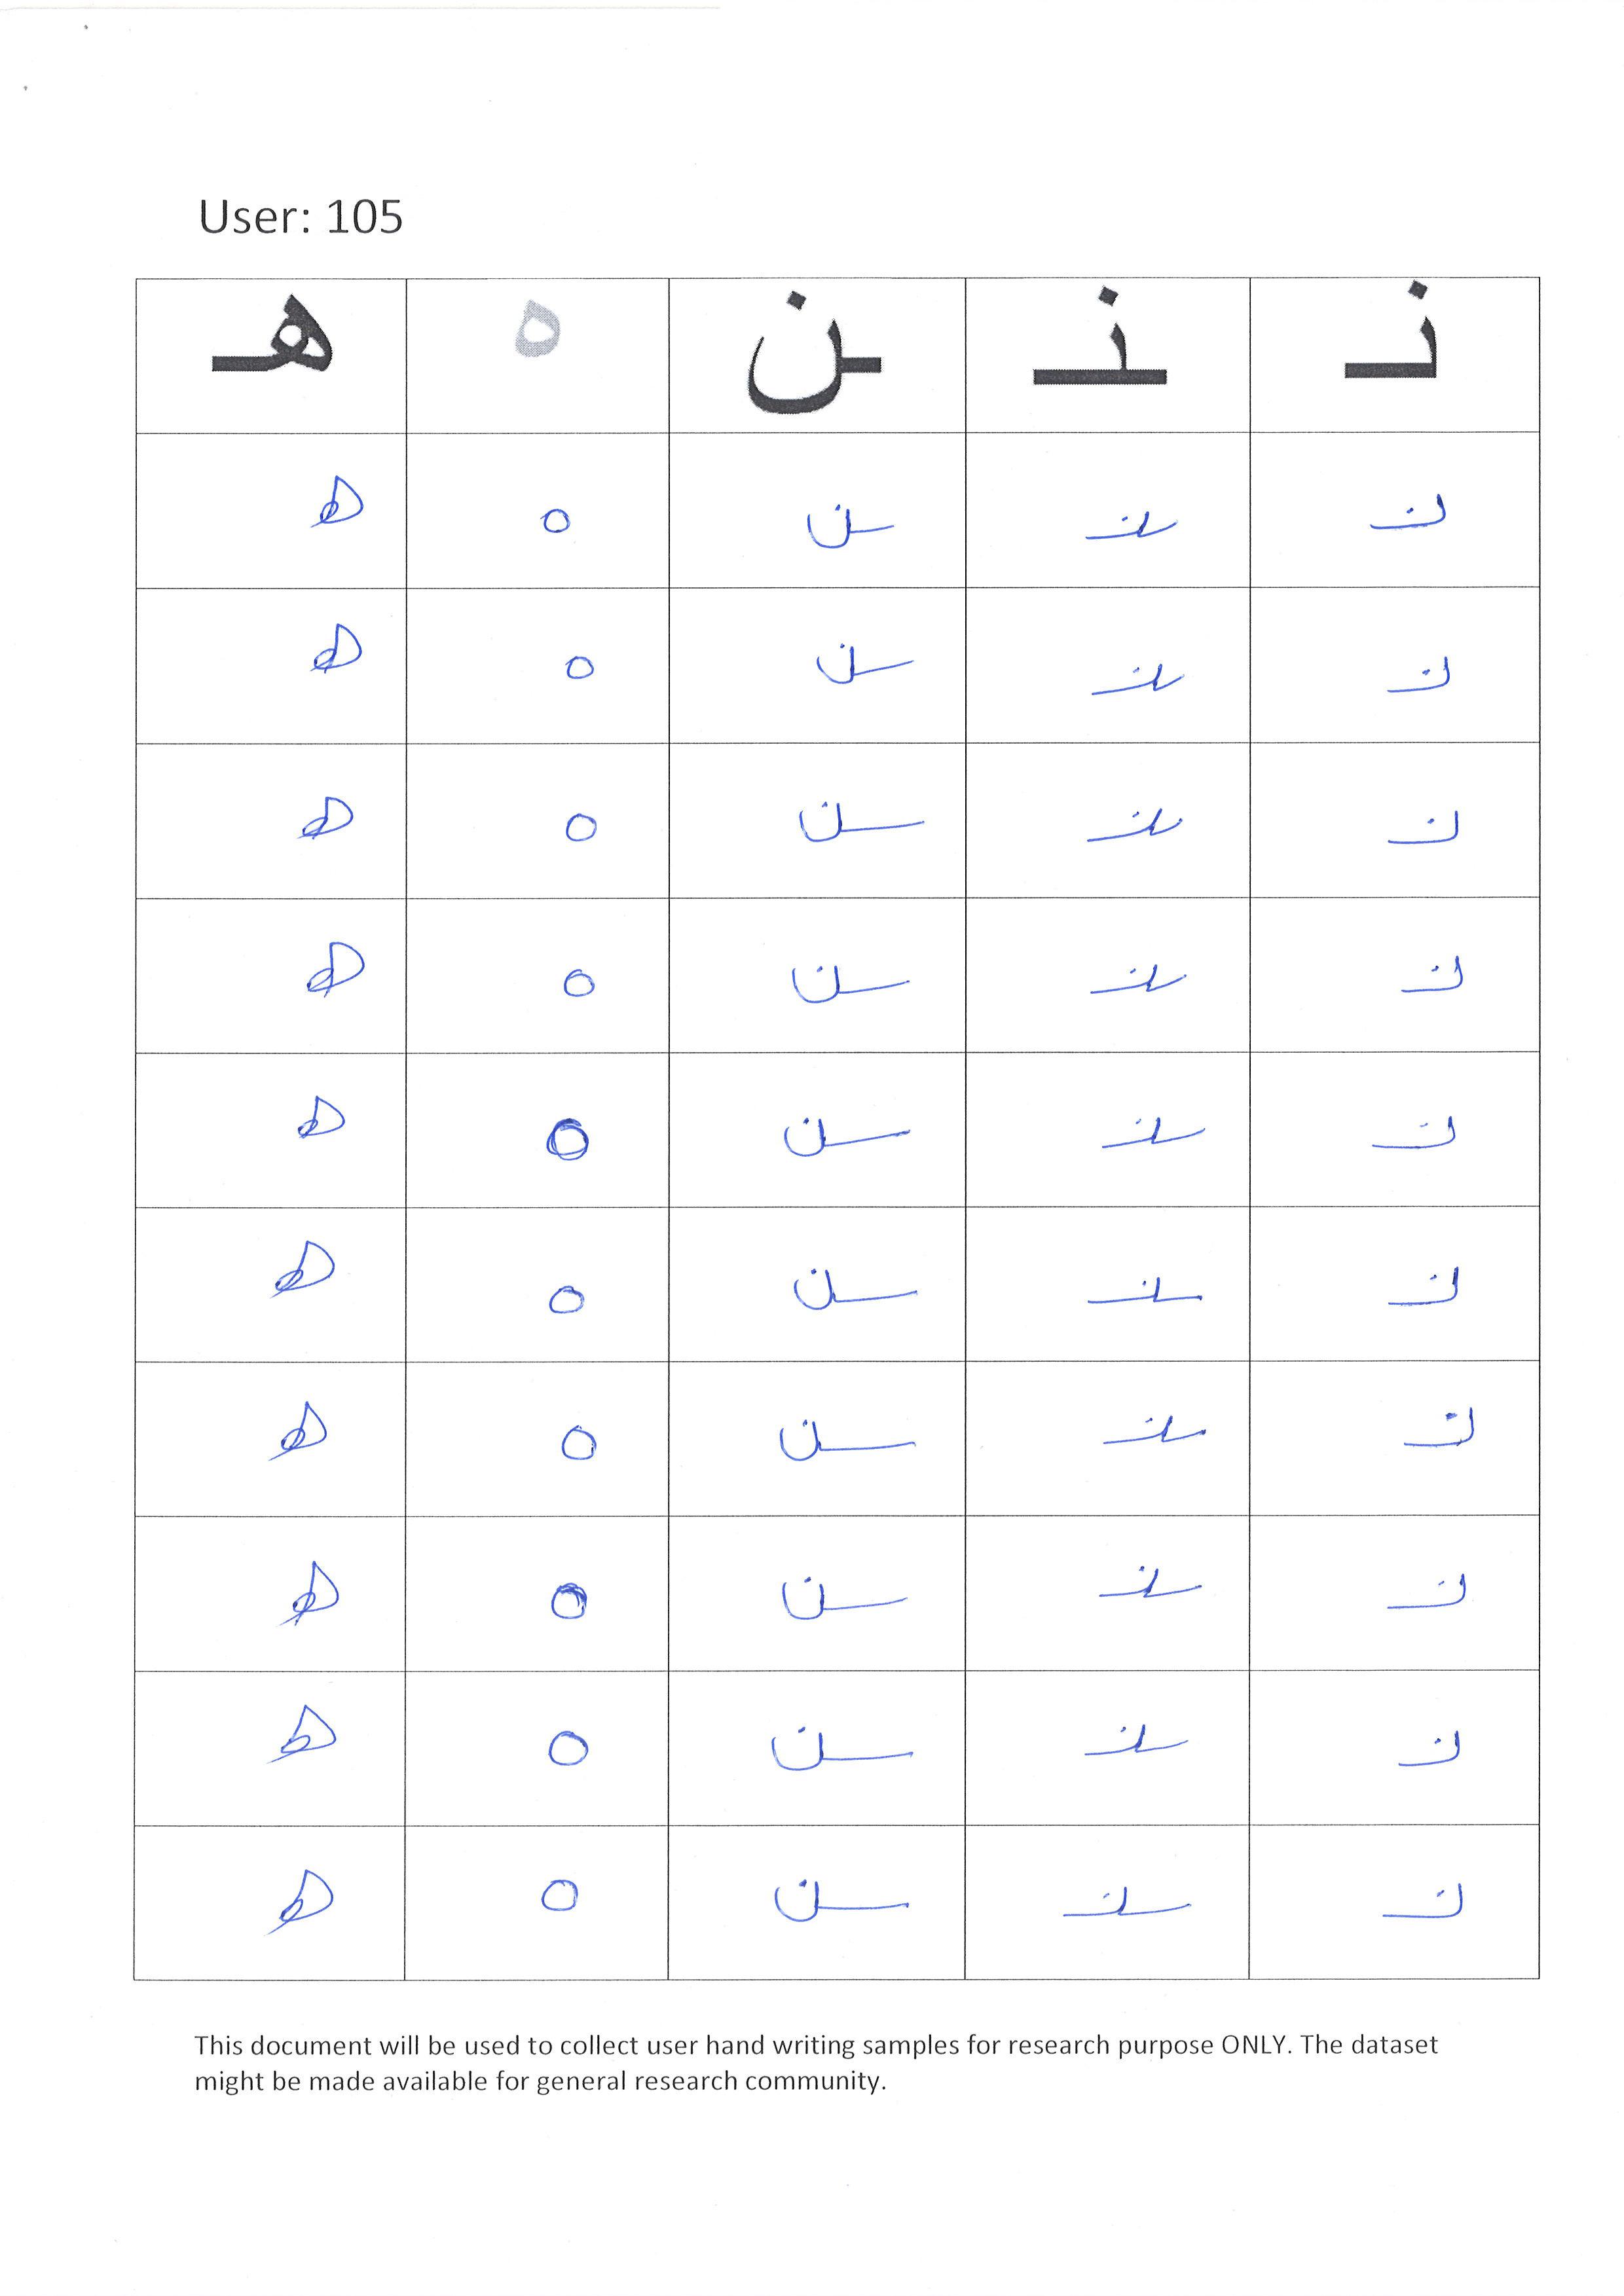 User: 105
نـ ـنـ ـن ه هـ
نـ ـنـ ـن ه هـ
نـ ـنـ ـن ه هـ
نـ ـنـ ـن ه هـ
نـ ـنـ ـن ه هـ
نـ ـنـ ـن ه هـ
نـ ـنـ ـن ه هـ
نـ ـنـ ـن ه هـ
نـ ـنـ ـن ه هـ
نـ ـنـ ـن ه هـ
نـ ـنـ ـن ه هـ
This document will be used to collect user hand writing samples for research purpose ONLY. The dataset
might be made available for general research community.